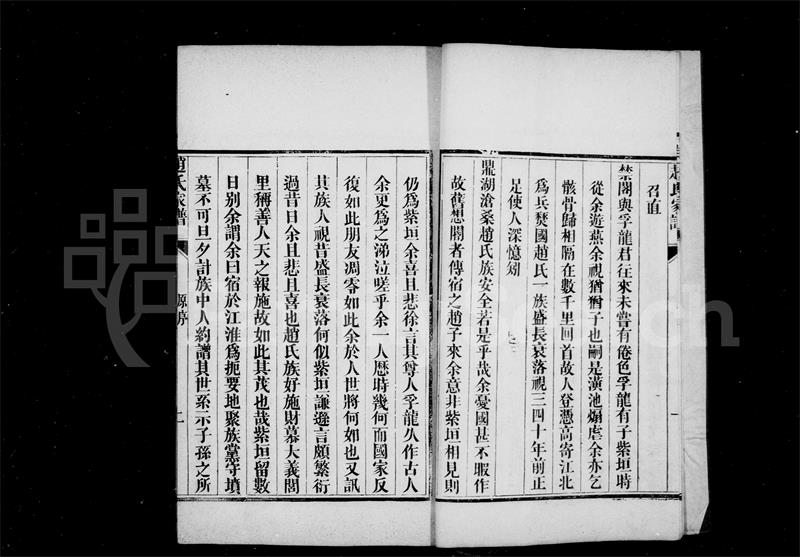 召直
禁閣與孚龍君往來未嘗有倦色孚龍有子紫垣時
從余遊燕余視猶猶子也嗣是潢池煽虐余亦乞
骸骨歸相隔在數千里回首故人登憑高寄江北
為兵燹國趙氏一族盛長衰落視三四十年前正
足使人深憶矧
鼎湖滄桑趙氏族安全若是乎哉余憂國甚不暇作
故舊想閽者傳宿之趙子來余意非紫垣相見則
仍為紫垣余喜且悲徐言其尊人孚龍久作古人
余更為之涕泣嗟乎余一人歷時幾何而國家反
復如此朋友凋零如此余於人世將何如也又訊
其族人視昔盛長衰落何似紫垣謙遜言頗繁衍
過昔日余且悲且喜也趙氏族好施財慕大義閭
里稱善人天之報施故如此其茂也哉紫垣留數
日別余謂余曰宿於江淮為扼要地聚族黨守墳
墓不可旦夕計族中人約譜其世系示子孫之所
趙氏家譜
源序
二